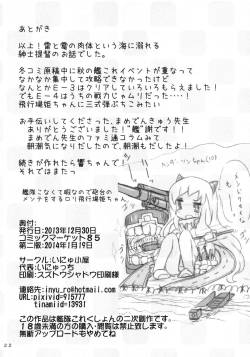 あとがき
以上！雷と電の肉体という海に溺れる
紳士提督のお話でした。
冬コミ原稿中に秋の艦これイベントが重なって
なかなか集中して攻略できなかったけど
なんとかE－3はクリアしていろいろもらえました！
でもE－4はうちの戦力じゃムリだった・・・！
飛行場姫ちゃんに三式弾ぶちこみたい
お手伝いしてくださった、まめでんきゅう先生
ありがとうございました！"艦"謝です！！
まめでん先生のファミ通コラムみて
朝潮気になりだしたので、朝潮もだしたよ！
続きが作れたら響ちゃんで！
それではまたっ
艦隊こなくて暇なので砲台の
メンテをするロリ飛行場姫ちゃん
奥付：
発行日：2013年12月30日
コミックマーケット85
第二版：2014年1月19日
サークル：いにゅ小屋
代表：いにゅっち
印刷：スズトウシャドウ印刷様
連絡先：inyu_ro@hotmail.com
URL：pixivid=915777
tinamiid=13931
この作品は艦隊これくしょんの二次創作です。
18歳未満の方の購入・閲覧は禁止です。
無断アップロードもやめてね